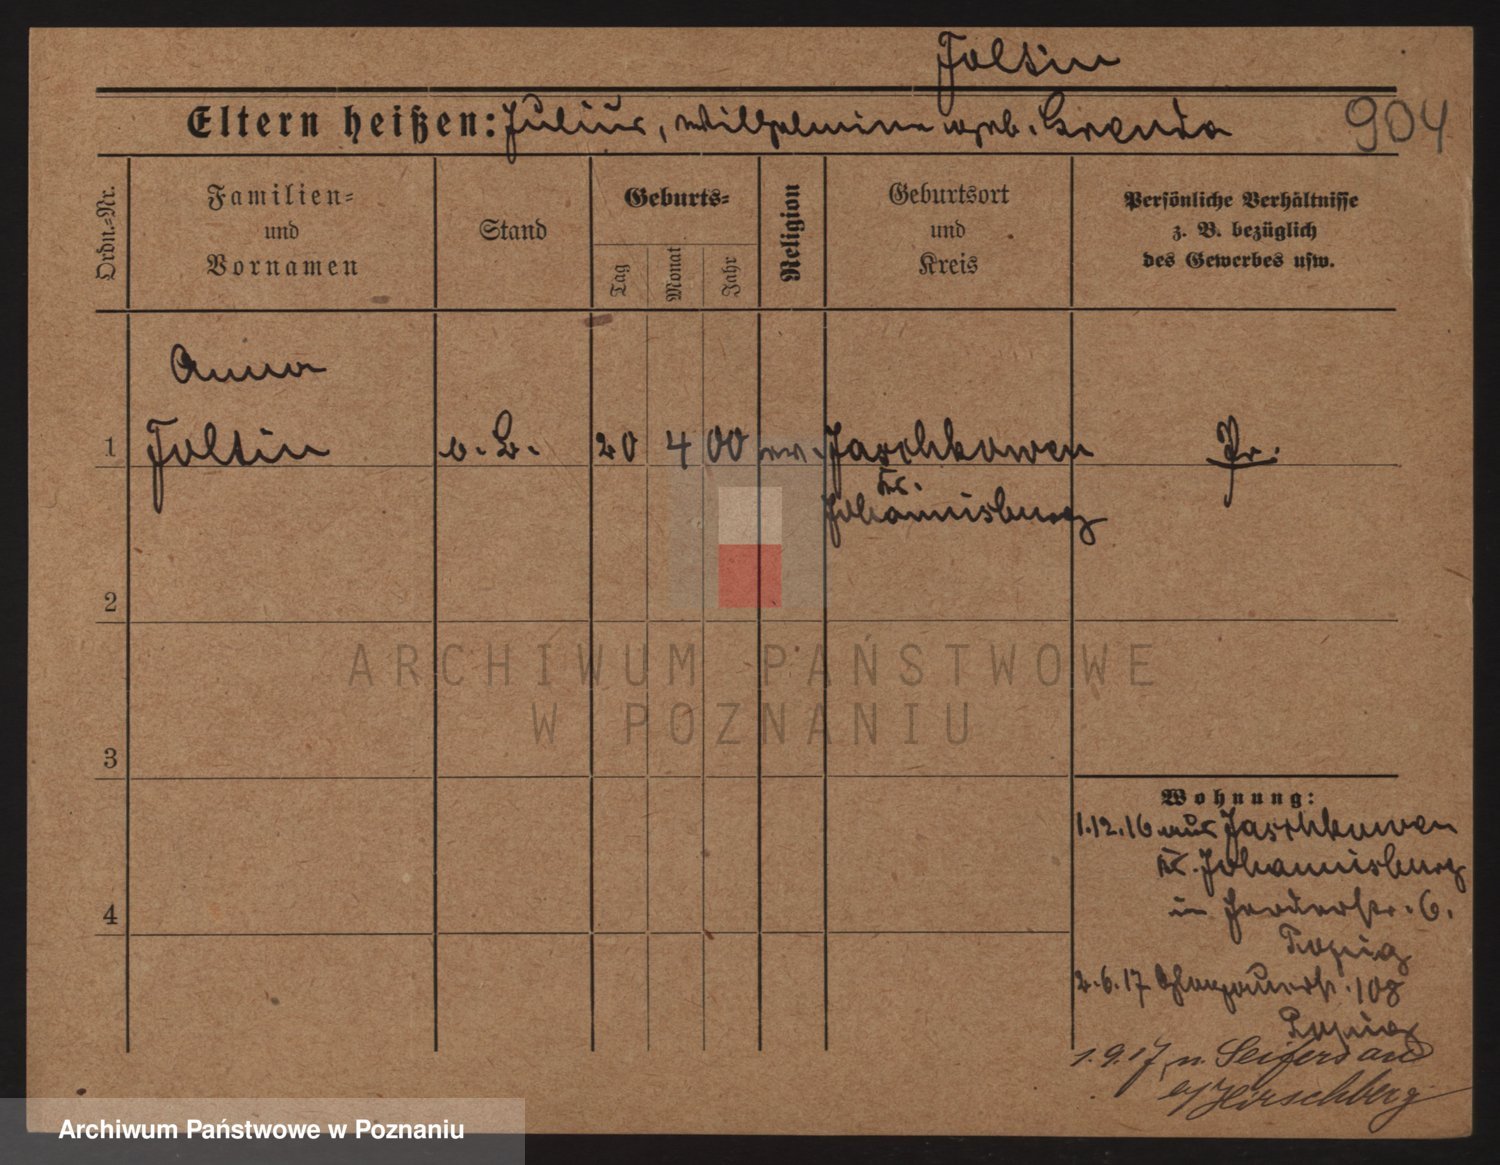 Foltin
Eltern heißen: Julius, Wilhelmine geb. Brenda
904
Ordn.-Nr.
Familien-
und
Vornamen
Stand
Geburts-
Tag
Monat
Jahr
Religion
Geburtsort
und
Kreis
Persönliche Verhältnisse
z. B. bezüglich
des Gewerbes usw.
Anna
1 Foltin o. B. 20 4 00 ev. Jaschkowen Pr.
Kr.
Johannisburg
2
ARCHIWUM PAŃSTWOWE
W POZNANIU
3
4
Wohnung:
1.12.16 aus Jaschkowen
Kr. Johannisburg
in 6.
2.6.17 Glogauerstr. 108
1.9.17 n. Seifersdau
b/Hirschberg
Archiwum Państwowe w Poznaniu